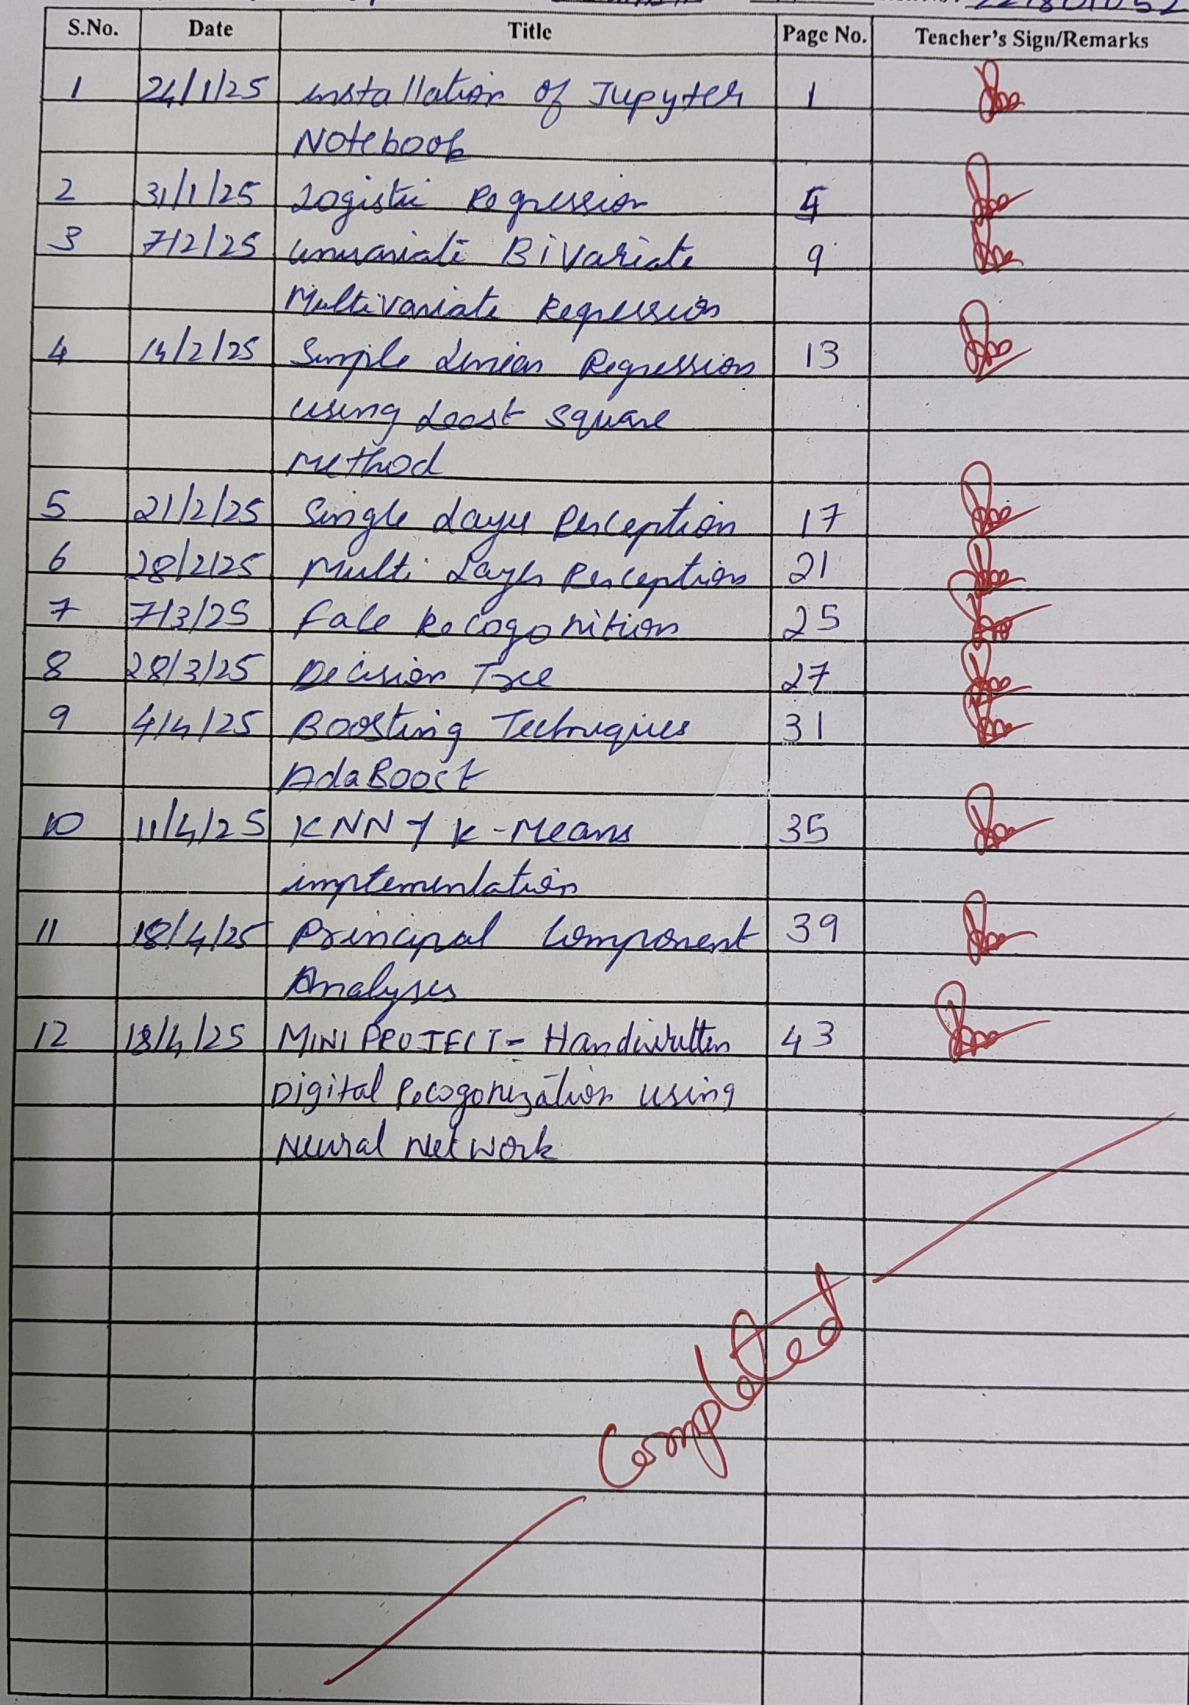 S.No. Date Title Page No. Teacher's Sign/Remarks
1 24/1/25 installation of Jupyter 1
Notebook
2 31/1/25 Logistic Regression 5
3 7/2/25 Univariate Bivariate 9
Multivariate Regression
4 14/2/25 Simple Linear Regression 13
using Least Square
Method
5 21/2/25 Single Layer Perception 17
6 28/2/25 Multi Layer Perception 21
7 7/3/25 Face Recogonition 25
8 28/3/25 Decision Tree 27
9 4/4/25 Boosting Techniques 31
AdaBoost
10 11/4/25 KNN & K-Means 35
implementation
11 18/4/25 Principal Component 39
Analyses
12 18/4/25 MINI PROJECT - Handwritten 43
Digital Recogonization using
Neural Network
Completed